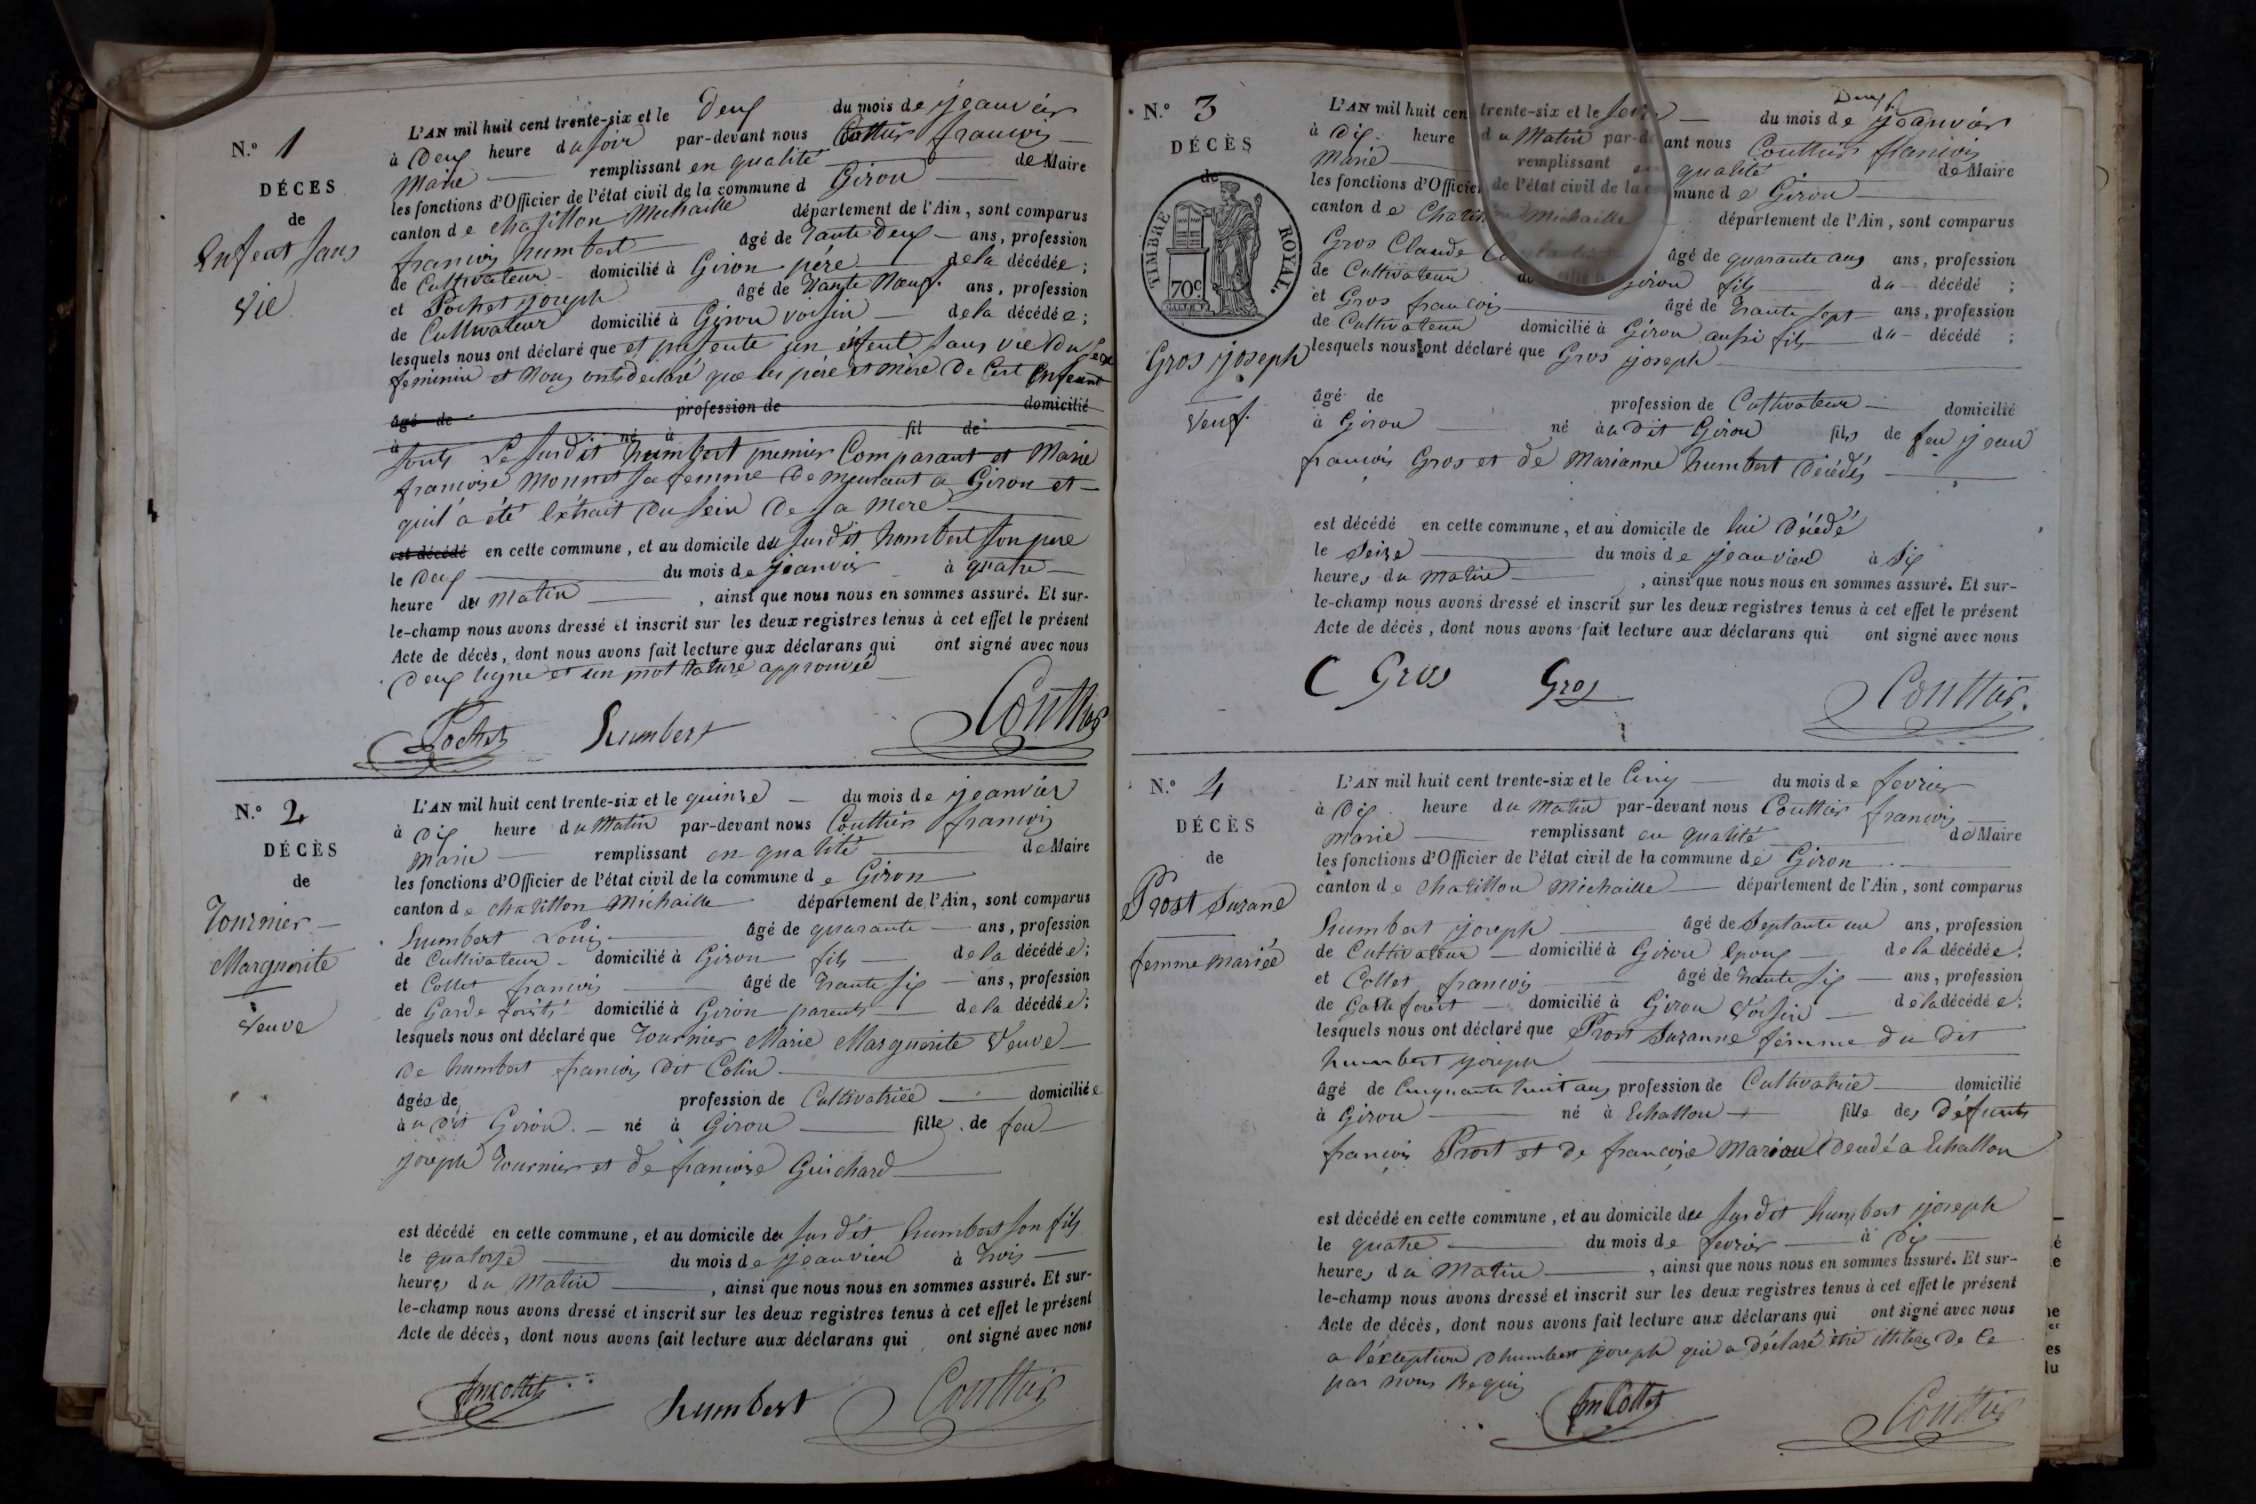 N.º 1
DÉCES
de
Enfent sans
vie
L'AN mil huit cent trente-six et le Deux du mois de jeanvier
à Deux heure du soir par-devant nous Couttier francois
Marie remplissant en qualité de Maire
les fonctions d'Officier de l'état civil de la commune d Giron
canton de chatillon Michaille département de l'Ain, sont comparus
francois humbert âgé de trante Deux ans, profession
de Cultivateur domicilié à Giron père de la décédée;
et Pochet joseph âgé de trante Neuf ans, profession
de Cultivateur domicilié à Giron voisin de la décédée;
lesquels nous ont déclaré que et presente un enfent sans vie du sexe
feminin et Nous onts declaré que les père et mère De Cert Enfeant
âgé de profession de domicilié
à né à fil de
sonts Le susdit humbert premier Comparant et Marie
francoise Monnet sa femme Demeurant a Giron et
quil a été Extrait Du sein De sa Mere
est décédé en cette commune, et au domicile du susdit humbert son père
le Deux du mois de jeanvier à quatre
heure du Matin, ainsi que nous nous en sommes assuré. Et sur-
le-champ nous avons dressé et inscrit sur les deux registres tenus à cet effet le présent
Acte de décès, dont nous avons fait lecture aux déclarans qui ont signé avec nous
Deux ligne et un mot rature approuvée
Pochet humbert Couttier
N.º 2
DÉCÈS
de
Tournier
Marguerite
veuve
L'AN mil huit cent trente-six et le quinze du mois de jeanvier
à Dix heure du Matin par-devant nous Couttier francois
Marie remplissant en qualité de Maire
les fonctions d'Officier de l'état civil de la commune de Giron
canton de chatillon Michaille département de l'Ain, sont comparus
humbert Louis âgé de quarante ans, profession
de Cultivateur domicilié à Giron fils de la décédée;
et Collet francois âgé de trante six ans, profession
de Garde forêts domicilié à Giron parents de la décédée;
lesquels nous ont déclaré que Tournier Marie Marguerite Veuve
de humbert francois dit Colin
âgée de profession de Cultivatrice domiciliée
à u dit Giron né à Giron fille de feu
joseph Tournier et de francoise Guichard
est décédé en cette commune, et au domicile du susdit humbert son fils
le quatorze du mois de jeanvier à trois
heures du Matin, ainsi que nous nous en sommes assuré. Et sur-
le-champ nous avons dressé et inscrit sur les deux registres tenus à cet effet le présent
Acte de décès, dont nous avons fait lecture aux déclarans qui ont signé avec nous
humbert Couttier
N.º 3
DÉCÈS
de
TIMBRE ROYAL.
70 c.
Gros joseph
veuf.
L'AN mil huit cent trente-six et le seize du mois de jeanvier
à Dix heure du Matin par-devant nous Couttier francois
Marie remplissant en qualité de Maire
les fonctions d'Officier de l'état civil de la commune de Giron
canton de Chatillon Michaille département de l'Ain, sont comparus
Gros Claude âgé de quarante ans ans, profession
de Cultivateur domicilié à Giron fils du décédé;
et Gros francois âgé de trante sept ans, profession
de Cultivateur domicilié à Giron aussi fils du décédé;
lesquels nous ont déclaré que Gros joseph
âgé de profession de Cultivateur domicilié
à Giron né àu dit Giron fils de feu jean
francois Gros et de Marianne humbert Décédés
est décédé en cette commune, et au domicile de lui Décédé
le Seize du mois de jeanvier à six
heures du Matin, ainsi que nous nous en sommes assuré. Et sur-
le-champ nous avons dressé et inscrit sur les deux registres tenus à cet effet le présent
Acte de décès, dont nous avons fait lecture aux déclarans qui ont signé avec nous
C Gros Gros Couttier.
N.º 4
DÉCÈS
de
Prost Suzane
femme mariée
L'AN mil huit cent trente-six et le Cinq du mois de fevrier
à Dix heure du Matin par-devant nous Couttier francois
Marie remplissant en qualité de Maire
les fonctions d'Officier de l'état civil de la commune de Giron
canton de chatillon Michaille département de l'Ain, sont comparus
humbert joseph âgé de Septante un ans, profession
de Cultivateur domicilié à Giron Epoux de la décédée;
et Collet francois âgé de trante six ans, profession
de Garde forêt domicilié à Giron Voisin de la décédée;
lesquels nous ont déclaré que Prost Suzanne femme du dit
humbert joseph
âgé de Cinquante huit ans profession de Cultivatrice domicilié
à Giron né à Echallon fille des Défunts
francois Prost et de francoise Decédé a Echallon
est décédé en cette commune, et au domicile du susdit humbert joseph
le quatre du mois de fevrier à Dix
heures du Matin, ainsi que nous nous en sommes assuré. Et sur-
le-champ nous avons dressé et inscrit sur les deux registres tenus à cet effet le présent
Acte de décès, dont nous avons fait lecture aux déclarans qui ont signé avec nous
a l'exception dhumbert joseph qui a déclaré être illitéré De Ce
par nous Requis
Couttier